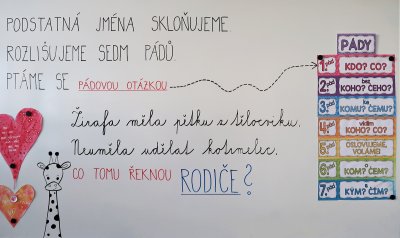 PODSTATNÁ JMÉNA SKLOŇUJEME.
ROZLIŠUJEME SEDM PÁDŮ.
PTÁME SE PÁDOVOU OTÁZKOU
Žirafa měla pětku z tělocviku.
Neuměla udělat kotrmelec.
CO TOMU ŘEKNOU RODIČE?
PÁDY
1. pád KDO? CO?
2. pád bez KOHO? ČEHO?
3. pád ke KOMU? ČEMU?
4. pád vidím KOHO? CO?
5. pád OSLOVUJEME, VOLÁME!
6. pád o KOM? ČEM?
7. pád s KÝM? ČÍM?